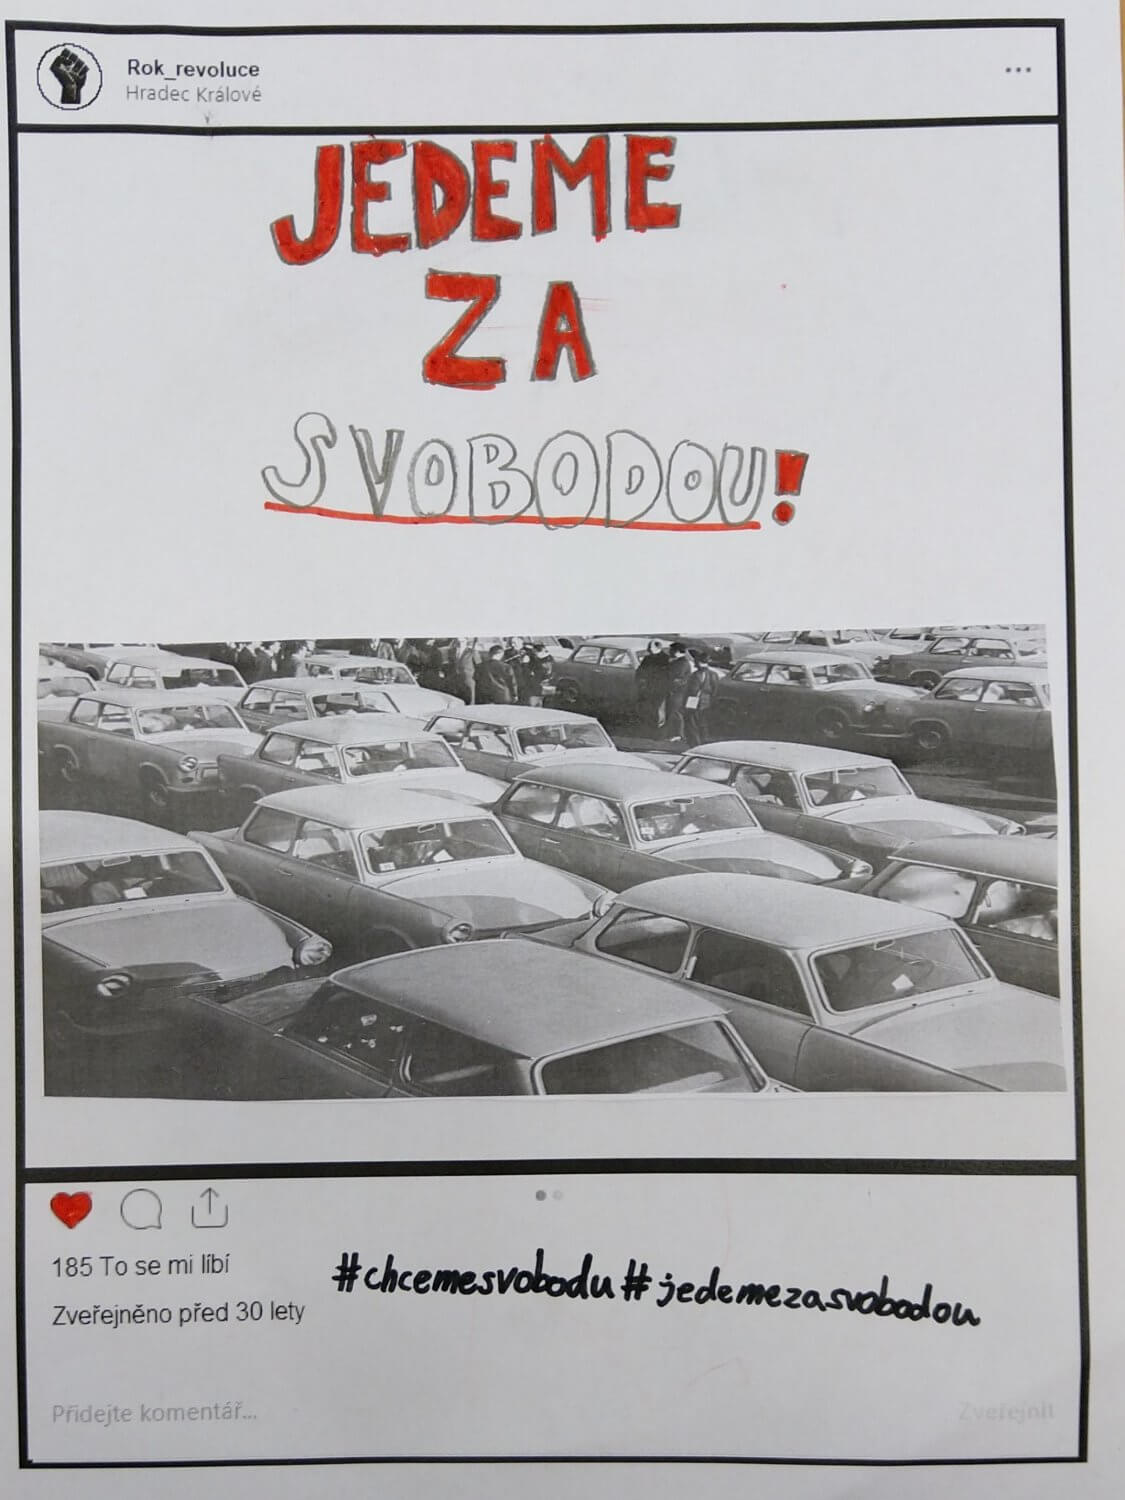 Rok_revoluce
Hradec Králové
JEDEME
ZA
SVOBODOU!
185 To se mi líbí
#chcemesvobodu#jedemezasvobodou
Zveřejněno před 30 lety
Přidejte komentář...
Zveřejnit